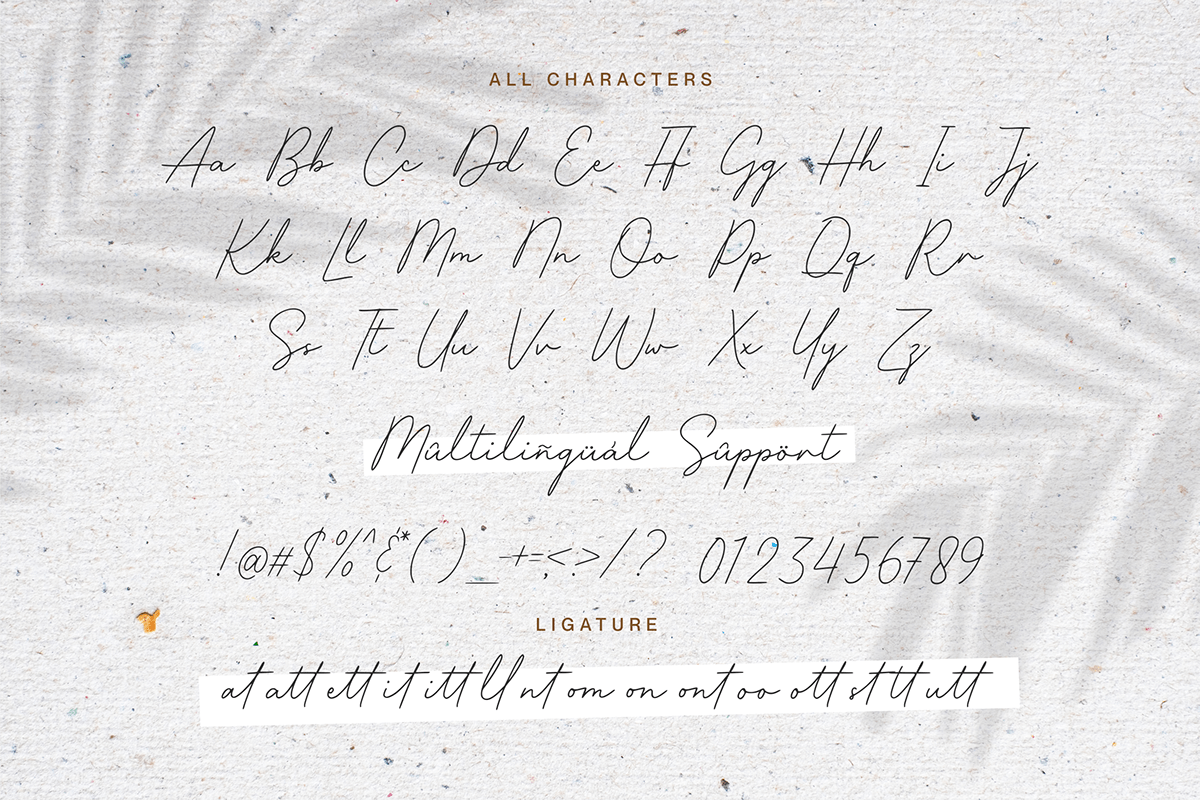 ALL CHARACTERS
Aa Bb Cc Dd Ee Ff Gg Hh Ii Jj
Kk Ll Mm Nn Oo Pp Qq Rr
Ss Tt Uu Vv Ww Xx Yy Zz
Mûltiliñgüál Sûppört
!@#$%^&*()_+=,<.>/? 0123456789
LIGATURE
at att ett it itt ll nt om on ont oo ott st tt utt